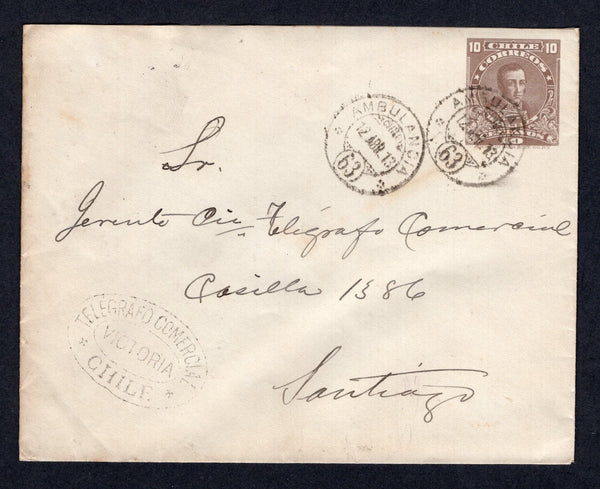 10 CHILE 10
CORREOS
AMBULANCIA
12 ABR 13
63
AMBULANCIA
63
Sr.
Gerente Cia Telégrafo Comercial
Casilla 1386
TELEGRAFO COMERCIAL
VICTORIA
* CHILE *
Santiago